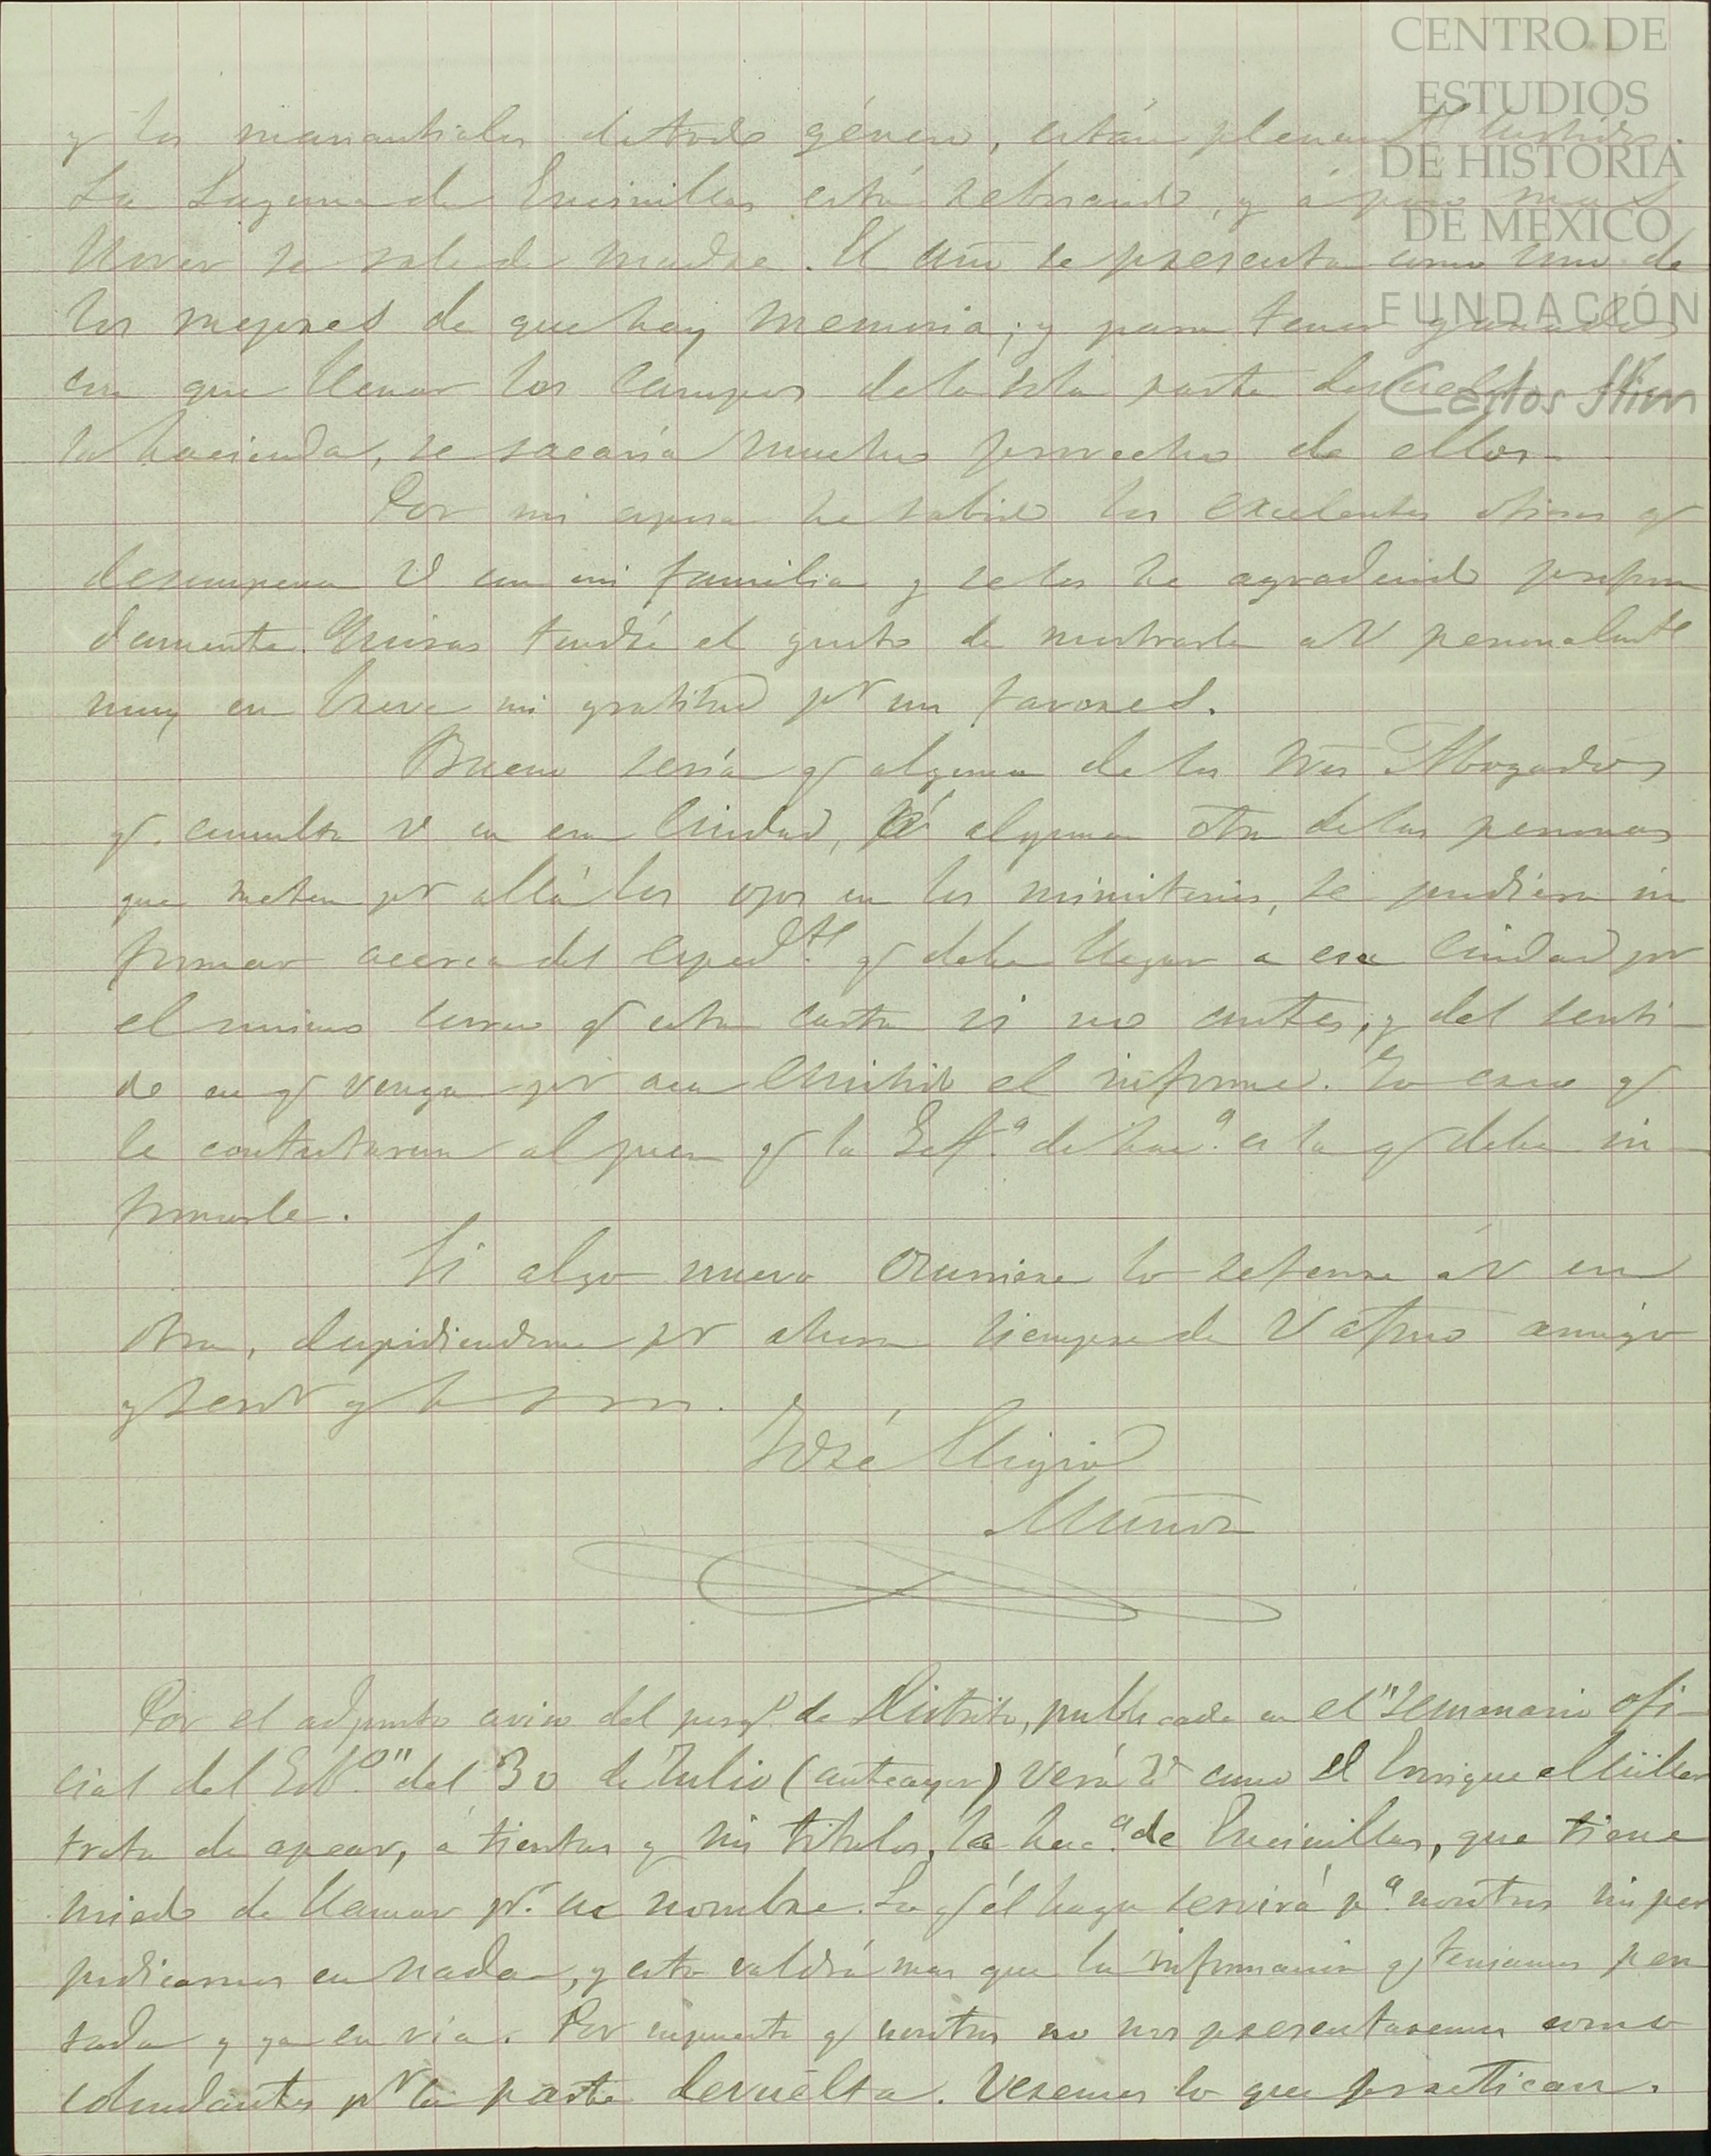 CENTRO DE
ESTUDIOS
DE HISTORIA
DE MEXICO
FUNDACIÓN
Carlos Slim
y los manantiales de todo género, están plenam.te
La Laguna de Encinillas está rebosando, y á poco mas
llover se sale de madre. El año se presenta como uno de
los mejores de que hay memoria; y para tener ganados
con que llenar los campos de la sola parte devuelta de
la hacienda, se sacaría mucho provecho de ellos.
Por mi esposa he sabido los excelentes oficios q
desempeña V con mi familia y se los he agradecido profun
damente. Quizas tendré el gusto de mostrarle a V personalmte
muy en breve mi gratitud pr sus favores.
Bueno sería q alguno de los Sres Abogados
q. consulta V en esa Ciudad, ó alguna otra de las personas
que meten pr allá los ojos en los ministerios, se pudiera in
formar acerca del Exped.te q debe llegar a esa Ciudad por
el mismo correo q esta carta si no antes, y del senti-
do en q venga pr acá emitido el informe. Yo creo q
le contestaron al juez q la Gef.a de hac.a es la q debe in-
formarle.
Si algo nuevo ocurriere lo referire á V en
otra, despidiendome pr ahora siempre de V afmo amigo
y servr q b s m.
José Eligio
Muñoz
Por el adjunto aviso del juzg.o de Distrito, publicado en el "Semanario ofi-
cial del Est.o" del 30 de Julio (anteayer) verá V como el Enrique Müller
trata de apear, á tientas y sin titulos, la hac.a de Encinillas, que tiene
miedo de llamar pr. su nombre. Lo q él haga servirá p.a nosotros sin per
judicarnos en nada, y esto valdrá mas que la informacion q teniamos pen
sada y ya en via. Por supuesto q nosotros no nos presentaremos como
colindantes pr la parte devuelta. Veremos lo que practican.